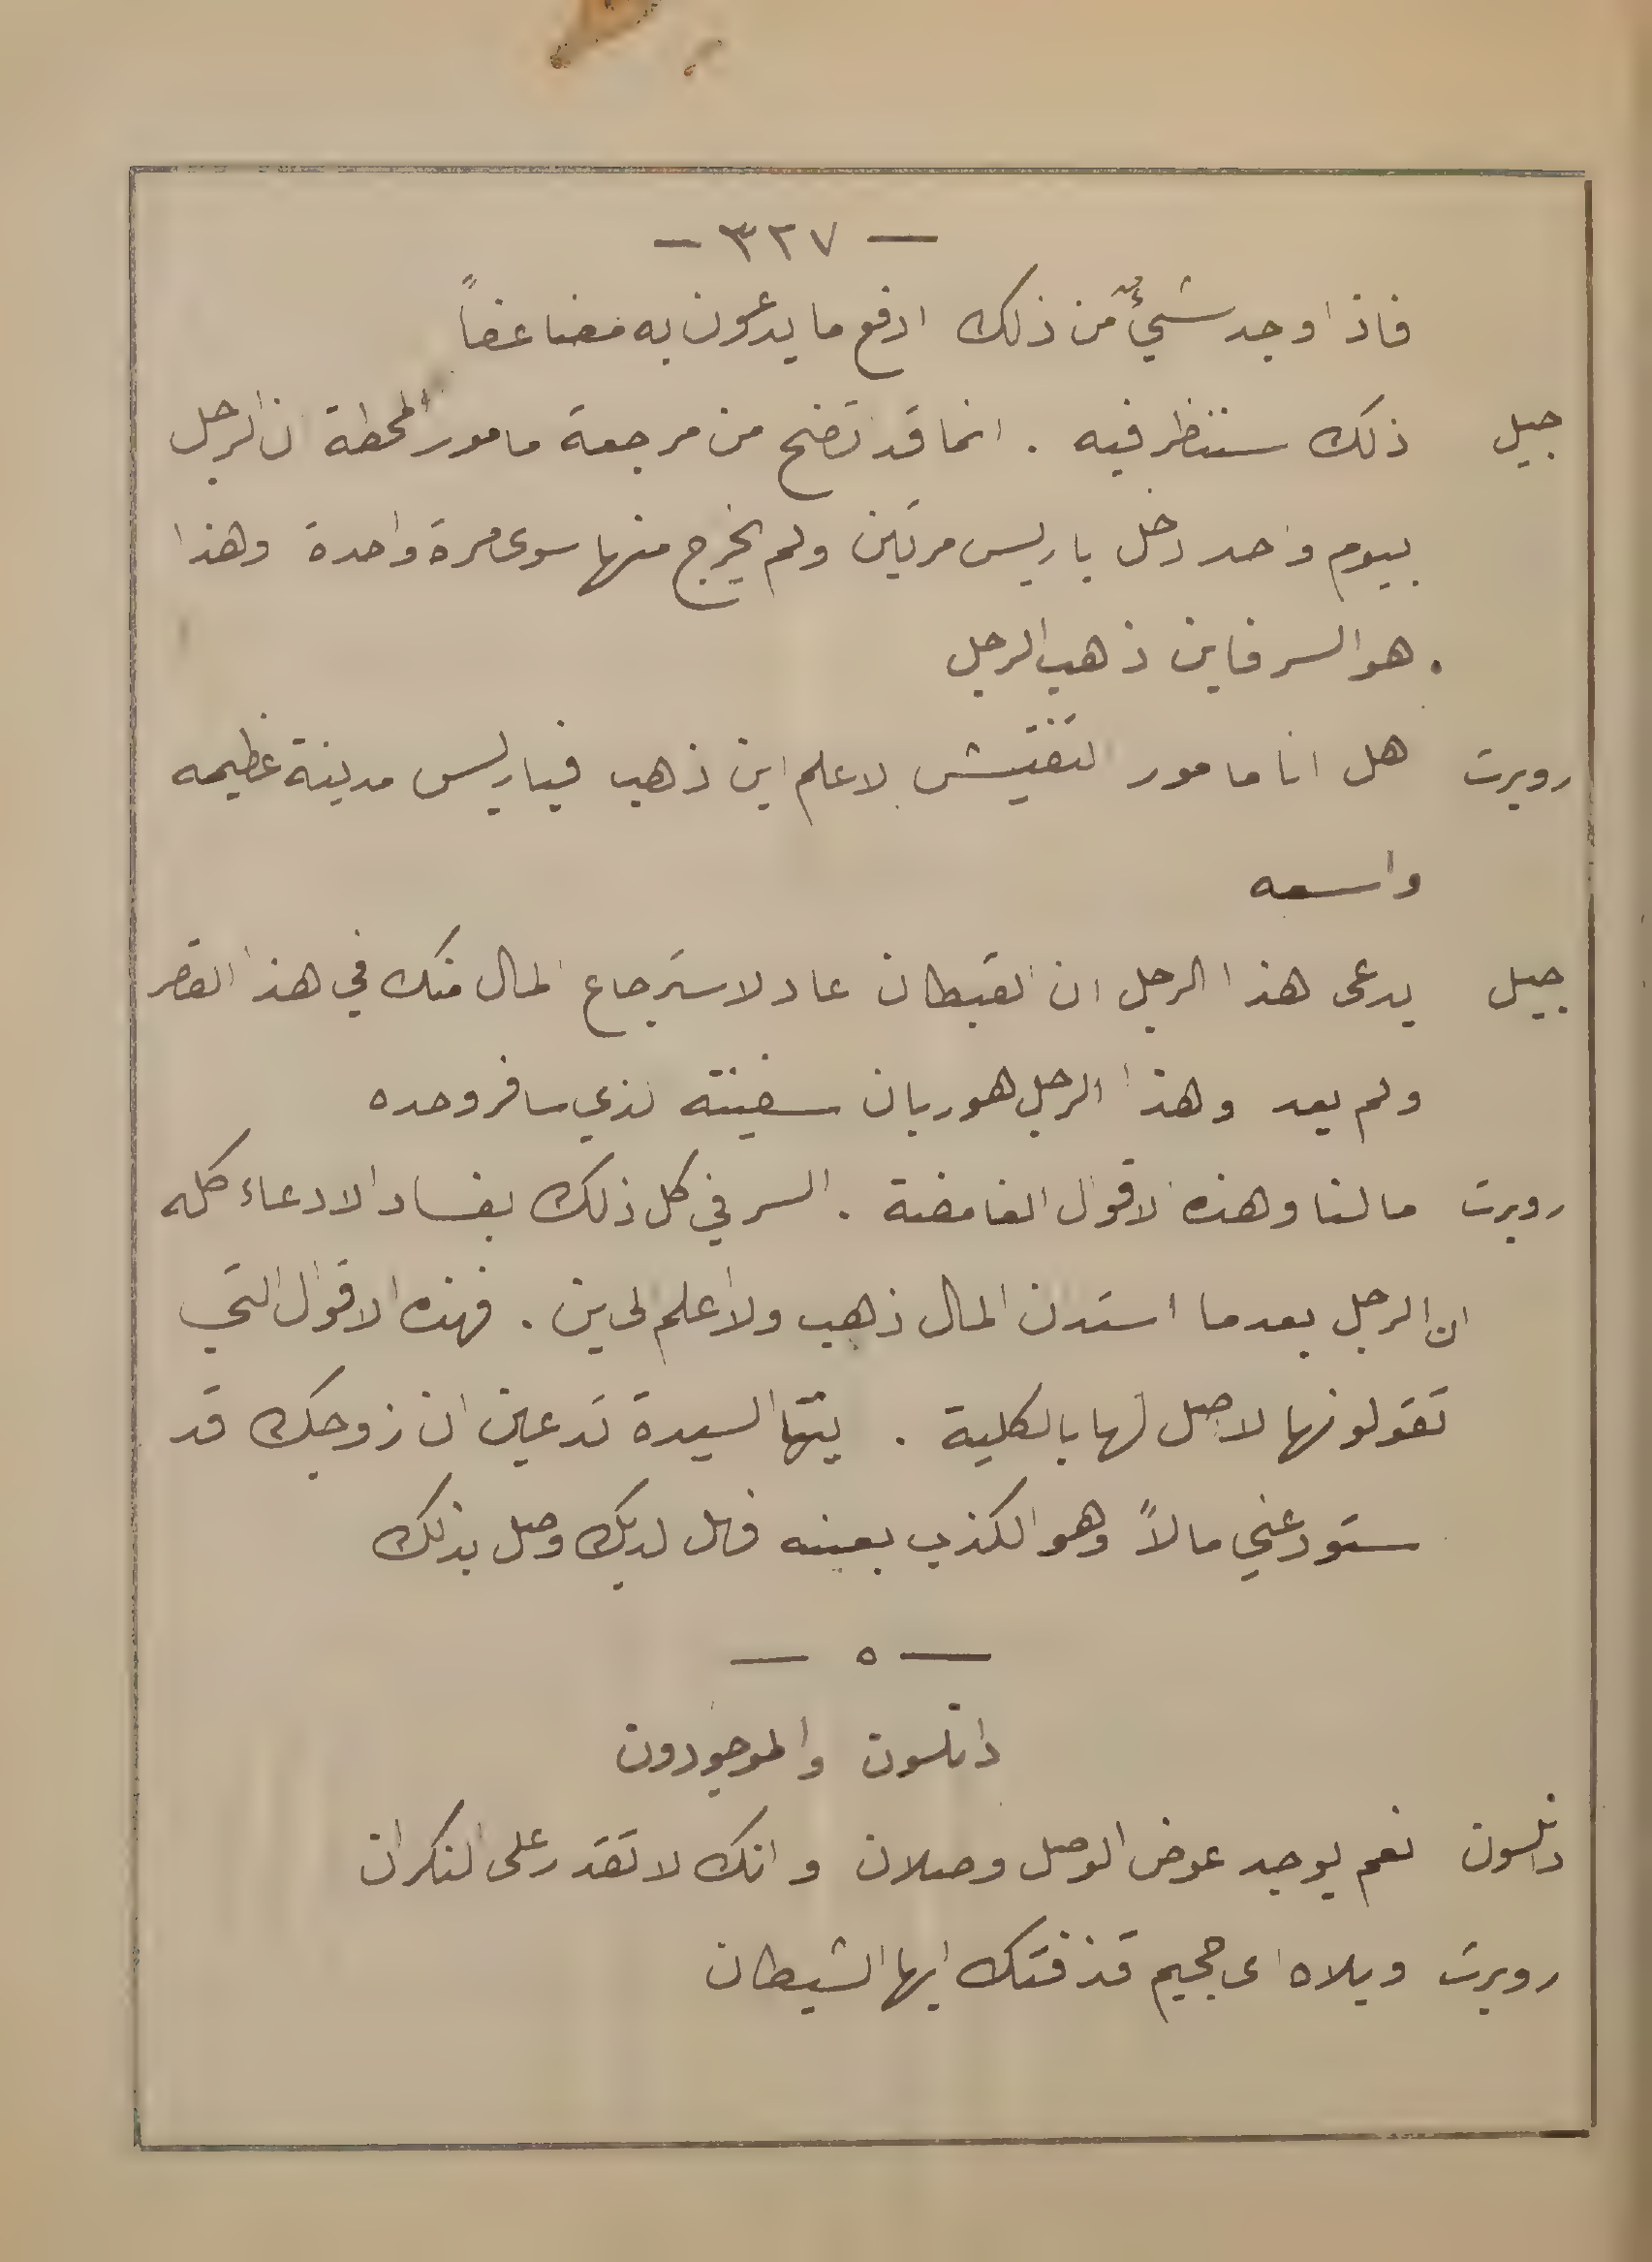 — ٣٢٧ —
فاذا وجد شيءٌ من ذلك ادفع ما يدعون به مضاعفاً
جيل ذلك سننظر فيه . انما قد اتضح من مرجعة مامور المحطة ان الرجل
بيوم واحد دخل باريس مرتين ولم يخرج منها سوى مرة واحدة وهذا
هو السر فاين ذهب الرجل .
روبرت هل انا مامور التفتيش لاعلم اين ذهب فباريس مدينة عظيمه
واسعه
جيل يدعى هذا الرجل ان القبطان عاد لاسترجاع المال منك في هذا القصر
ولم يعد وهذا الرجل هو ربان سفينته الذي سافر وحده
روبرت مالنا وهذه الاقوال الغامضة . السر في كل ذلك بفساد الادعاء كله
ان الرجل بعدما استدان المال ذهب ولا اعلم الى اين . فهذه الاقوال التي
تقولونها لا اصل لها بالكلية . ايتها السيدة تدعين ان زوجك قد
استودعني مالاً وهو الكذب بعينه فهل لديك وصل بذلك
— ٥ —
دانلسون والموجودون
دانلسون نعم يوجد عوض الوصل وصلان وانك لا تقدر على النكران
روبرت ويلاه اى جحيم قذفتك ايها الشيطان